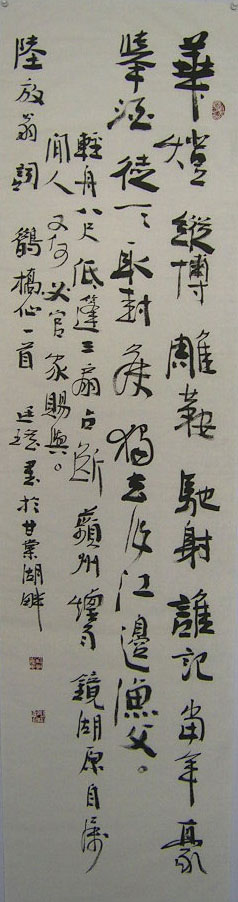 華燈縱博雕鞍馳射誰記當年豪
舉酒徒一一取封侯獨去作江邊漁父。
輕舟八尺低篷三扇占斷蘋洲煙雨鏡湖原自屬
閒人又何必官家賜與。
陸放翁詞 鵲橋仙一首 廷書於甘棠湖畔